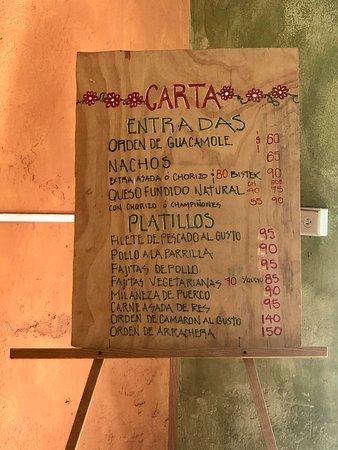 CARTA
ENTRADAS
ORDEN DE GUACAMOLE $ 60
NACHOS 65
EXTRA ASADA Ó CHORIZO $ 80 BISTEK 90
QUESO FUNDIDO NATURAL CH 40 GDE 75
CON CHORIZO Ó CHAMPIÑONES 55 90
PLATILLOS
FILETE DE PESCADO AL GUSTO 95
POLLO A LA PARRILLA 90
FAJITAS DE POLLO 95
FAJITAS VEGETARIANAS 70 C/QUESO 85
MILANEZA DE PUERCO 90
CARNE ASADA DE RES 95
ORDEN DE CAMARON AL GUSTO 140
ORDEN DE ARRACHERA 150